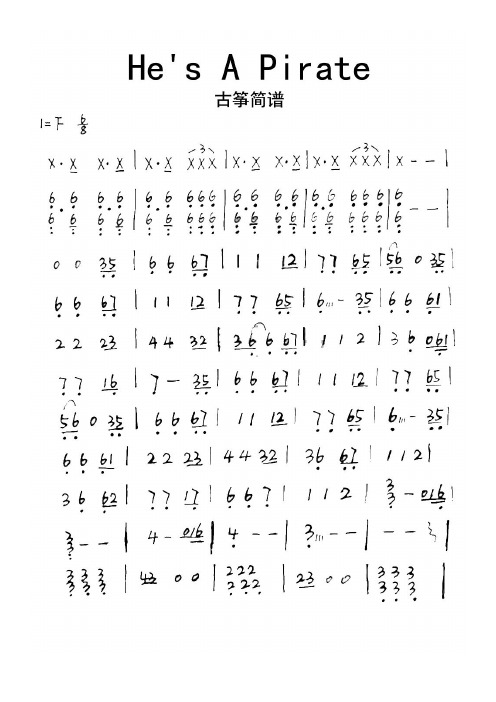 He's A Pirate
古筝简谱
1=F 6/8
x·x x·x | x·x xxx | x·x x·x | x·x xxx | x - - |
6·6 6·6 | 6·6 666 | 6·6 6·6 | 6·6 666 | 6 - - |
6·6 6·6 | 6·6 666 | 6·6 6·6 | 6·6 666 | 6
0 0 35 | 6 6 67 | 1 1 12 | 77 65 | 56 0 35 |
6 6 67 | 11 12 | 77 65 | 6 - 35 | 6 6 61 |
22 23 | 44 32 | 36 6 67 | 1 1 2 | 36 061 |
77 16 | 7 - 35 | 66 67 | 11 12 | 77 65 |
56 0 35 | 66 67 | 11 12 | 77 65 | 6 - 35 |
6 6 61 | 22 23 | 44 32 | 36 67 | 112 |
36 62 | 77 17 | 667 | 112 | 3 - 016 |
3 - - | 4 - 016 | 4 - - | 3 - - | - - |
333 | 43 00 | 222 | 23 00 | 333
333 222 333